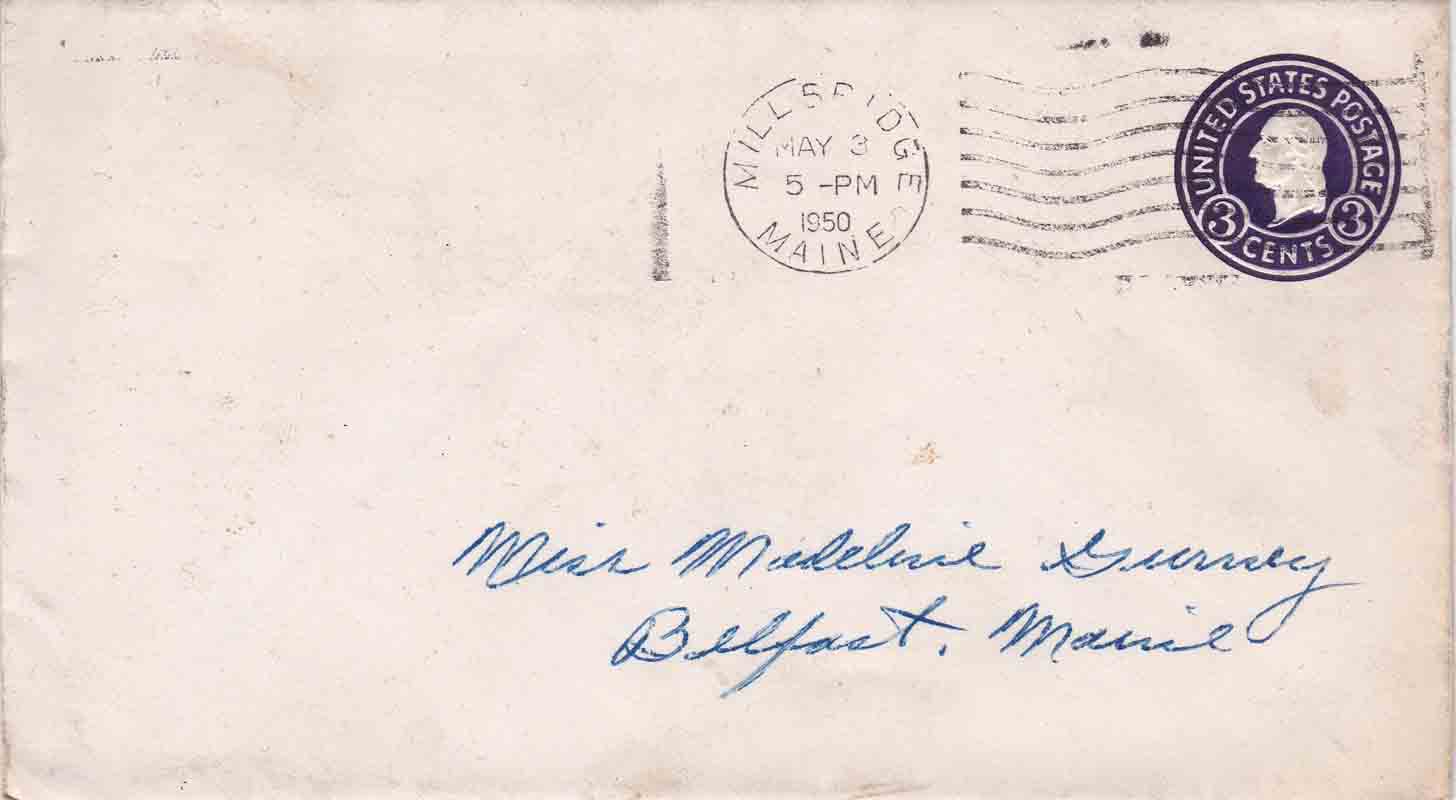 MILLBRIDGE
MAY 3
5 -PM
1950
MAINE
UNITED STATES POSTAGE
3 CENTS 3
Miss Madeline Gurney
Belfast, Maine